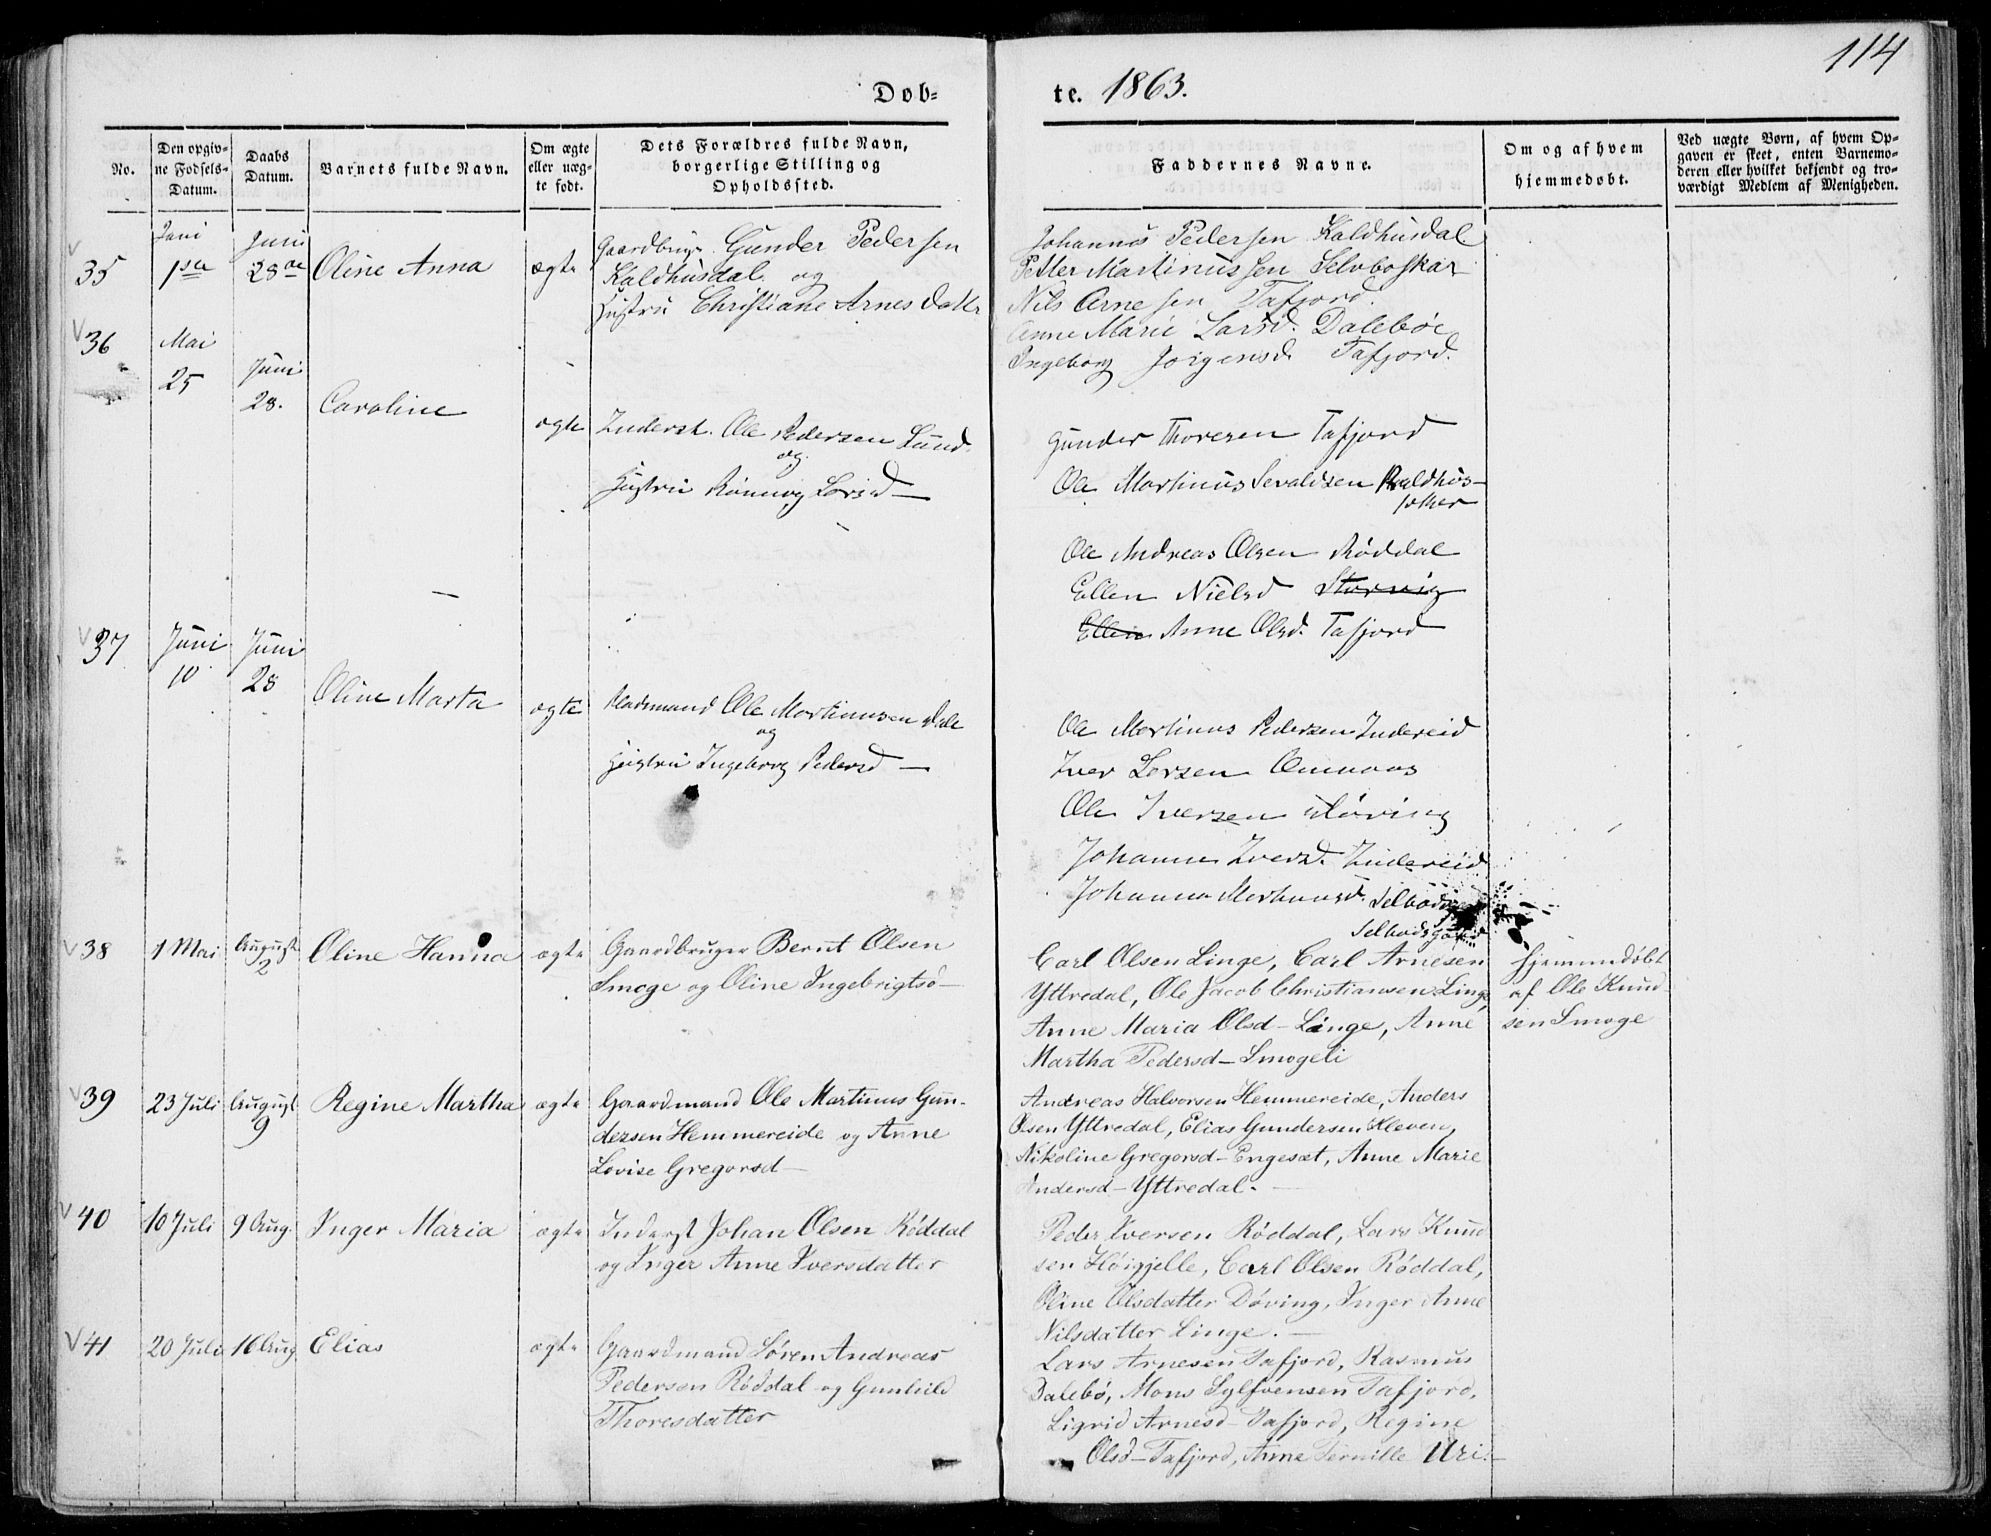 114
Døb-
te. 1863.
No.
Den opgiv-
ne Fødsels-
Datum.
Daabs
Datum.
Barnets fulde Navn.
Om ægte
eller uæg-
te født.
Dets Forældres fulde Navn,
borgerlige Stilling og
Opholdssted.
Faddernes Navne.
Om og af hvem
hjemmedøbt.
Ved uægte Børn, af hvem Op-
gaven er skeet, enten Barnemo-
deren eller hvilket bekjendt og tro-
værdigt Medlem af Menigheden.
35
Juni
1ste
Juni
28de
Oline Anna
ægte
Gaardbrug. Gunder Pedersen
Kaldhusdal og
Hustru Christiane Arnesdatter
Johannes Pedersen Kaldhusdal
Petter Martinussen Selboskar
Nils Arnesen Tafjord.
Anne Marie Larsd. Dalebøe
Ingeborg Jørgensd. Tafjord.
36
Mai
25
Juni
28.
Caroline
ægte
Inderst. Ole Pedersen Lund
og
Hustru Rønnog Larsd —
Gunder Thoresen Tafjord
Ole Martinus Sevaldsen Kaldhus-
Ole Andreas Olsen Røddal
Ellen Nielsd Storvig
Ellen Anne Olsd. Tafjord
37
Juni
10
Juni
28
Oline Marta
ægte
Pladsmand Ole Martinusen Dale
og
Hustru Ingeborg Pedersd —
Ole Martinus Pedersen Indereid
Iver Larsen Omenaas
Ole Iversen Døving
Johanne Iversd. Indereid
Johanna Martinusd.
Selbodsgaard
38
1 Mai
August
2
Oline Hanna
ægte
Gaardbruger Bernt Olsen
Smoge og Oline Ingebrigtsd —
Carl Olsen Linge, Carl Arnesen
Yttredal, Ole Jacob Christiansen Linge,
Anne Maria Olsd — Linge, Anne
Martha Pedersd — Smogeli
Hjemmedøbt
af Ole Knud-
sen Smoge
39
23 Juli
August
9
Regine Martha
ægte
Gaardmand Ole Martinus Gun-
dersen Hemmereide og Anne
Lovise Gregorsd —
Andreas Halvorsen Hemmereide, Anders
Olsen Yttredal, Elias Gundersen Kleven,
Nikoline Gregorsd — Engesæt, Anne Marie
Andersd — Yttredal. —
40
10 Juli
9 Aug.
Inger Maria
ægte
Inderst Johan Olsen Røddal
og Inger Anne Iversdatter
Peder Iversen Røddal, Lars Knud-
sen Høigjelle, Carl Olsen Røddal,
Oline Olsdatter Døving, Inger Anne
Nilsdatter Linge. —
41
20 Juli
16 Aug
Elias
ægte
Gaardmand Søren Andreas
Pedersen Røddal og Gunhild
Thoresdatter
Lars Arnesen Tafjord, Rasmus
Dalebø, Mons Sylfvensen Tafjord,
Sigrid Arnesd — Tafjord, Regine
Olsd — Tafjord, Anne Pernille Uri. —